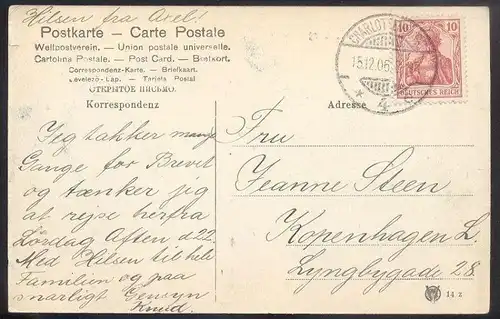 Hilsen fra Axel!
Postkarte — Carte Postale
Weltpostverein. — Union postale universelle.
Cartolina Postale. — Post Card. — Brefkort.
Correspondenz-Karte. — Briefkaart.
Levelező-Lap. — Tarjeta Postal
ОТКРЫТОЕ ПИСЬМО.
Korrespondenz
Adresse
15.12.06.
* 4
10 10
DEUTSCHES REICH
Jeg takker mange
Gange for Brevet
og tænker jeg
at rejse herfra
Lørdag Aften d 22.
Med Hilsen til hele
Familien og paa
snarligt Gensyn
Knud.
Fru
Jeanne Steen
Kopenhagen L
Lyngbygade 28.
14 z